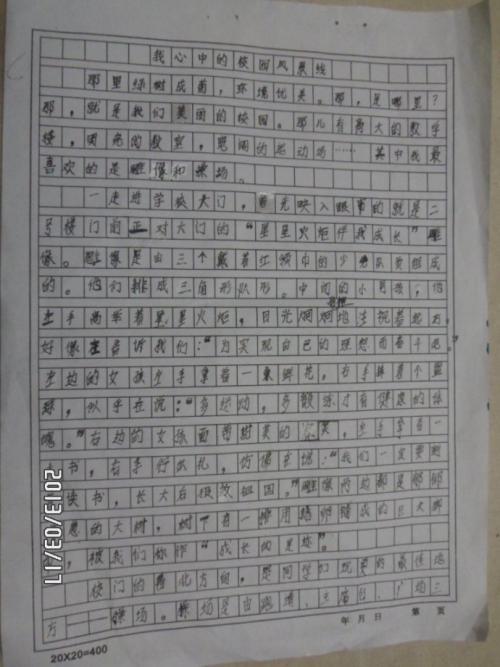 我心中的校园风景线
那里绿树成荫，环境优美。那，是哪里？
那，就是我们美丽的校园。那儿有高大的教学
楼，明亮的教室，宽阔的运动场……其中我最
喜欢的是雕像和操场。
一走进学校大门，首先映入眼帘的就是二
号楼门前正对大门的“星星火炬伴我成长”雕
像。雕像是由三个戴着红领巾的少先队员组成
的。他们排成三角形队形。中间的小男孩，他
左手高举着星星火炬，目光炯炯地
好像在告诉我们：“为实现自己的理想而奋斗吧
左边的女孩左手拿着一束鲜花，右手
球，似乎在说：“多运动，多锻炼才有健康的体
魄。”右边的女孩面带甜美的微笑，左手拿着一
书，右手行队礼，仿佛在说：“我们一定要
读书，长大后报效祖国。”雕像两边都是郁郁
葱的大树，树下有一排用
，被我们称作“成长的足迹”。
校门的西北方向，是同学们玩耍的最佳地
方——操场。操场是由跑道、主席台、广场三
年 月 日 第 页
20X20=400
2013/03/17